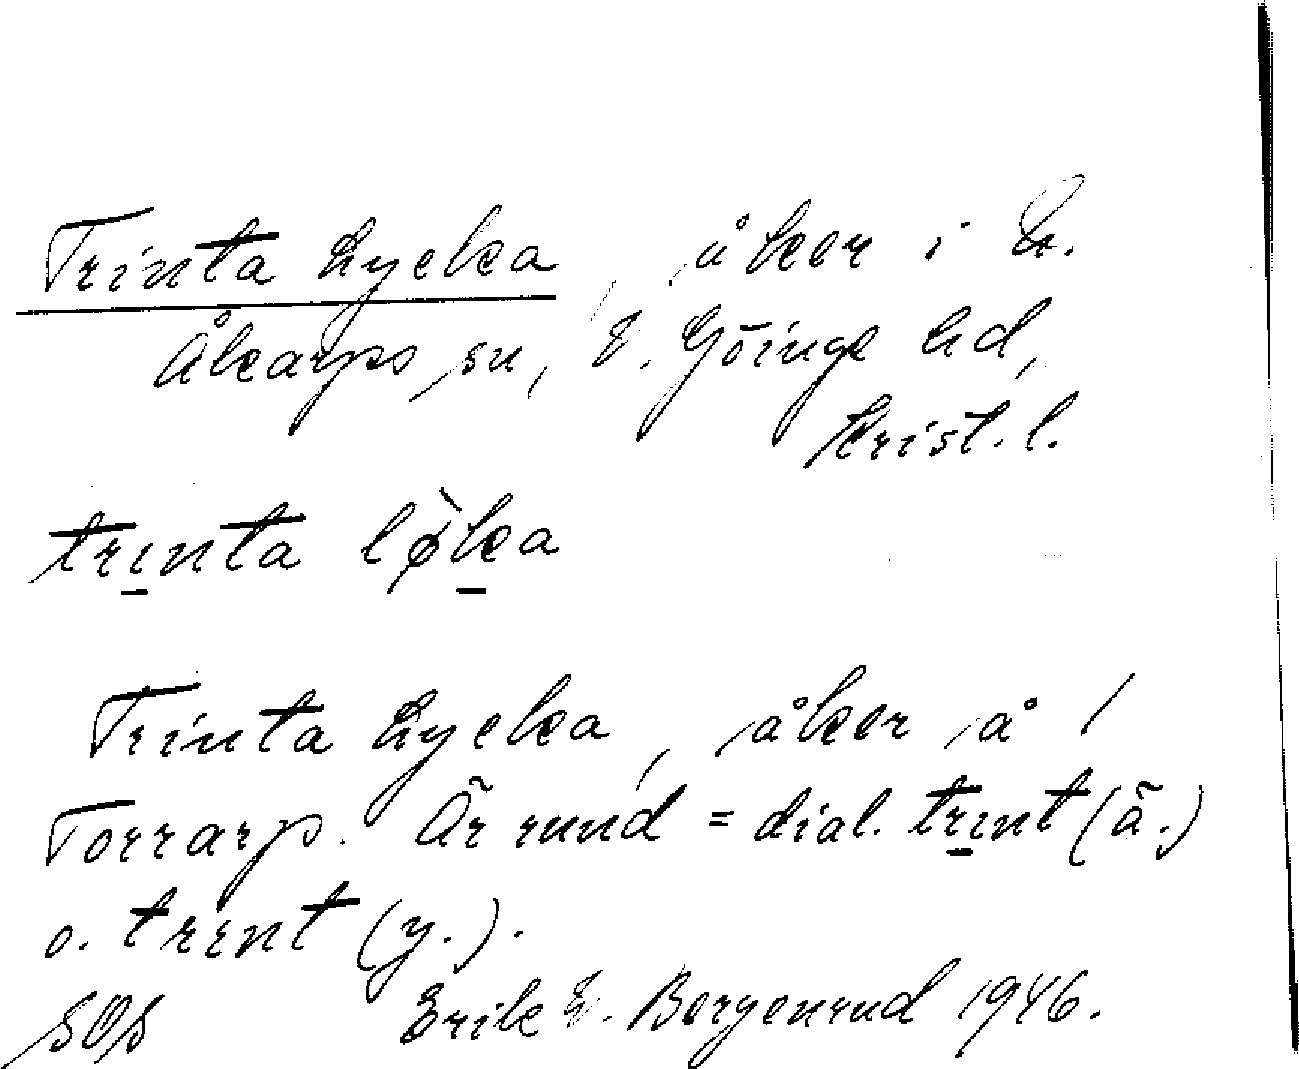 Trinta Lycka, åker i Ö.
Åkarps sn, Ö. Göinge hd,
Krist. l.
trı̠nta lø̀k̠a
Trinta Lycka, åker å 1
Torrarp. Är rund = dial. trı̠nt (ä.)
o. trent (y.).
SOS Erik E. Bergenrud 1946.